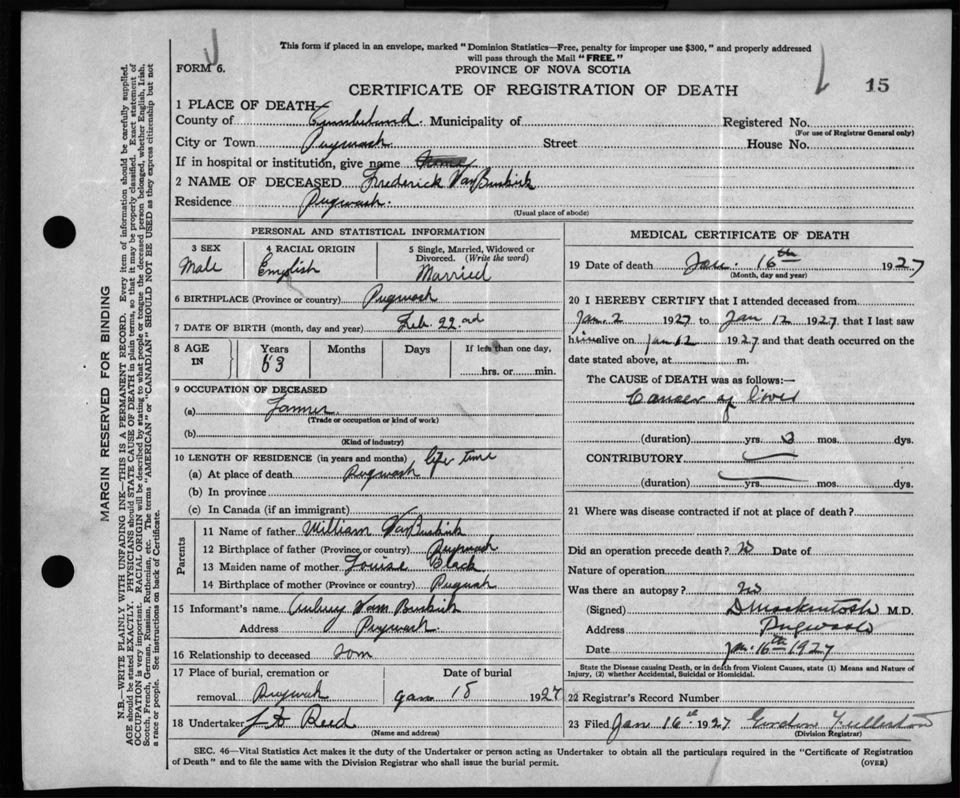 This form if placed in an envelope, marked "Dominion Statistics—Free, penalty for improper use $300," and properly addressed
will pass through the Mail "FREE."
FORM 6.
PROVINCE OF NOVA SCOTIA
CERTIFICATE OF REGISTRATION OF DEATH
15
1 PLACE OF DEATH—
County of Cumberland Municipality of Registered No.
(For use of Registrar General only)
City or Town Pugwash Street House No.
If in hospital or institution, give name
2 NAME OF DECEASED Frederick VanBuskirk
Residence Pugwash.
(Usual place of abode)
PERSONAL AND STATISTICAL INFORMATION
3 SEX 4 RACIAL ORIGIN 5 Single, Married, Widowed or
Divorced. (Write the word)
Male English Married
6 BIRTHPLACE (Province or country) Pugwash
7 DATE OF BIRTH (month, day and year) Feb. 22nd
8 AGE IN Years Months Days If less than one day,
63 hrs. or min.
9 OCCUPATION OF DECEASED
(a) Farmer
(Trade or occupation or kind of work)
(b)
(Kind of industry)
10 LENGTH OF RESIDENCE (in years and months) life time
(a) At place of death Pugwash
(b) In province
(c) In Canada (if an immigrant)
Parents
11 Name of father William VanBuskirk
12 Birthplace of father (Province or country) Pugwash
13 Maiden name of mother Louise Black
14 Birthplace of mother (Province or country) Pugwash
15 Informant's name Aubrey Van Buskirk
Address Pugwash.
16 Relationship to deceased Son
17 Place of burial, cremation or Date of burial
removal Pugwash Jan 18 1927
18 Undertaker Reid
(Name and address)
MEDICAL CERTIFICATE OF DEATH
19 Date of death Jan. 16th 1927
(Month, day and year)
20 I HEREBY CERTIFY that I attended deceased from
Jan. 2 1927 to Jan 12 1927, that I last saw
him alive on Jan 12 1927 and that death occurred on the
date stated above, at m.
The CAUSE of DEATH was as follows:—
Cancer of liver
(duration) yrs. mos. dys.
CONTRIBUTORY
(duration) yrs. mos. dys.
21 Where was disease contracted if not at place of death?
Did an operation precede death? no Date of
Nature of operation
Was there an autopsy? no
(Signed) D Mackintosh M.D.
Address Pugwash
Date Jan. 16th 1927
State the Disease causing Death, or in death from Violent Causes, state (1) Means and Nature of
Injury, (2) whether Accidental, Suicidal or Homicidal.
22 Registrar's Record Number
23 Filed Jan 16th 1927. Gordon Fullerton
(Division Registrar)
SEC. 46—Vital Statistics Act makes it the duty of the Undertaker or person acting as Undertaker to obtain all the particulars required in the "Certificate of Registration
of Death" and to file the same with the Division Registrar who shall issue the burial permit.
(OVER)
MARGIN RESERVED FOR BINDING
N.B.—WRITE PLAINLY WITH UNFADING INK—THIS IS A PERMANENT RECORD. Every item of information should be carefully supplied.
AGE should be stated EXACTLY. PHYSICIANS should STATE CAUSE OF DEATH in plain terms, so that it may be properly classified. Exact statement of
OCCUPATION is very important. RACIAL ORIGIN will be described by stating to what people or tongue the deceased person belonged, whether English, Irish,
Scotch, French, German, Russian, Ruthenian, etc. The terms "AMERICAN" or "CANADIAN" SHOULD NOT BE USED as they express citizenship but not
a race or people. See instructions on back of Certificate.